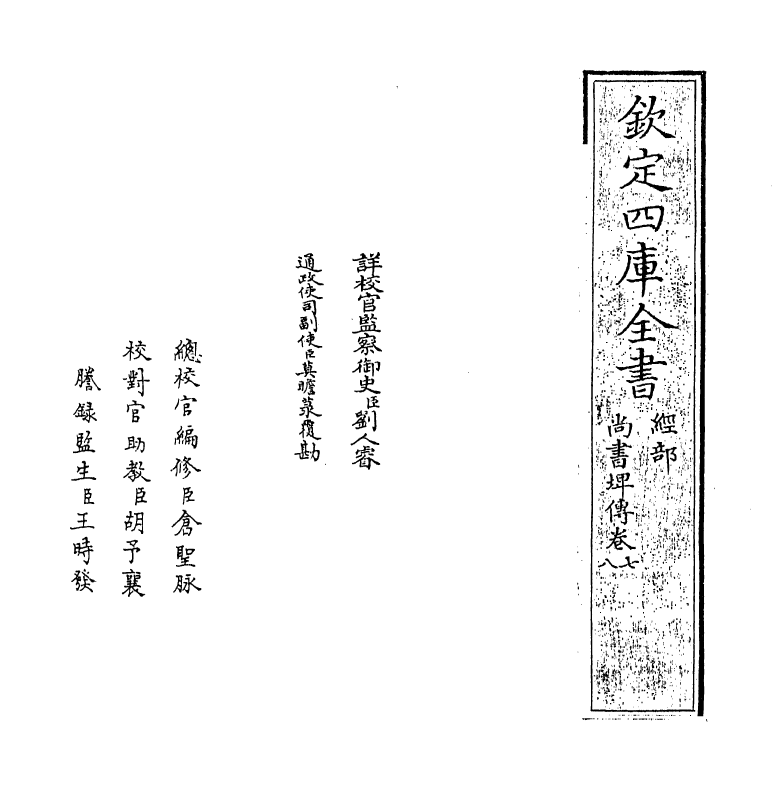 欽定四庫全書
經部
尚書埤傳卷七八
詳校官監察御史臣劉人睿
通政使司副使臣莫瞻菉覆勘
總校官編修臣倉聖脉
校對官助教臣胡予襄
謄錄監生臣王時發